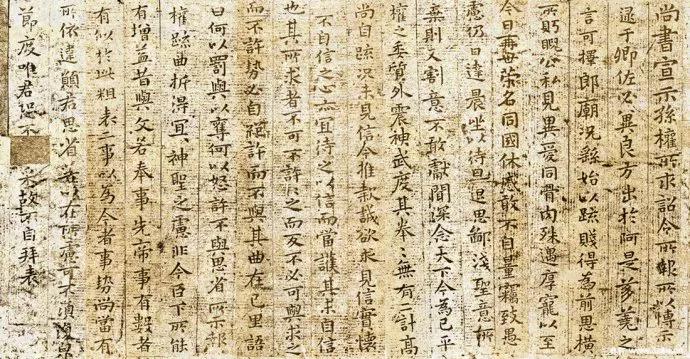 尚書宣示孫權所求詔令所報所以博示
逮于卿佐必冀良方出於阿是芻蕘之
言可擇郎廟況繇始以疏賤得為前恩橫
所眄睨公私見異愛同骨肉殊遇厚寵以至
今日再世榮名同國休慼敢不自量竊致愚
慮仍日達晨坐以待旦退思鄙淺聖意所
棄則又割意不敢獻聞深念天下今為已平
權之委質外震神武度其拳〻無有二計高
尚自疏況未見信今推款誠欲求見信實懷
不自信之心亦宜待之以信而當護其未自信
也其所求者不可不許許之而反不必可與求之
而不許勢必自絕許而不與其曲在己里語
曰何以罰與以奪何以怒許不與思省所示報
權疏曲折得宜〻神聖之慮非今臣下所能
有增益昔與文若奉事先帝事有數者
有似於此粗表二事以為今者事勢尚當有
所依違願君思省若以在所慮可不須
節度唯君恐不采故不自拜表